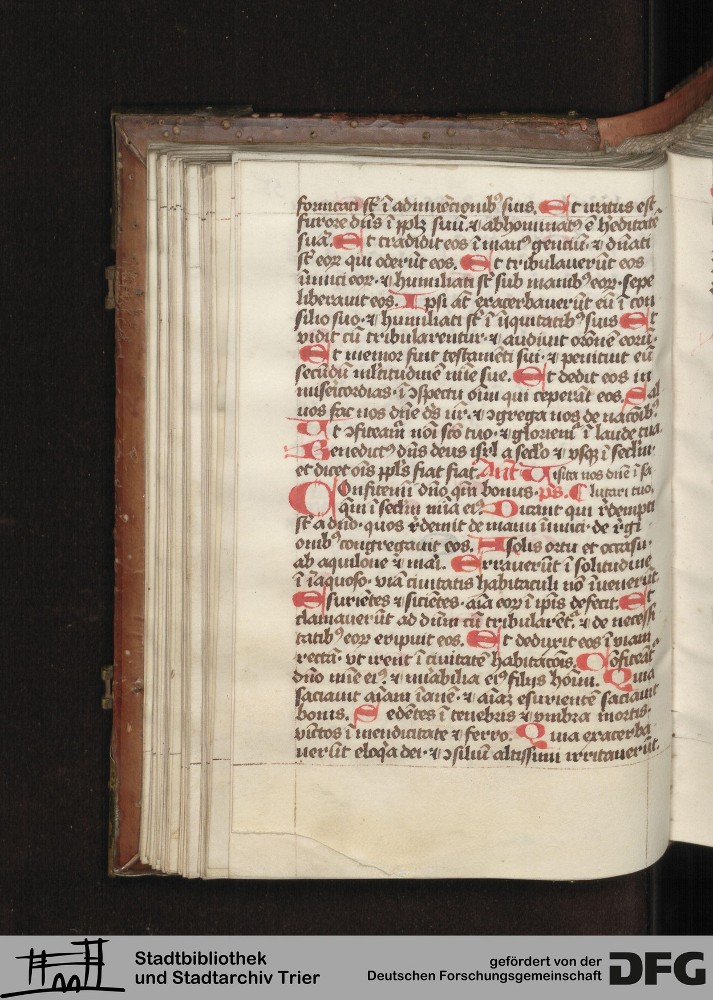 fornicati sť ĩ adinuẽcionibꝰ suis. Et iratus est
furore dñs ĩ pplm suũ. ⁊ abhominatꝰ ẽ hẽditatẽ
suã. Et tradidit eos ĩ manꝰ genciũ. ⁊ dñati
sť eoꝝ qui oderũt eos. Et tribulauerũt eos
inimici eoꝝ. ⁊ humiliati sť sub manibꝰ eoꝝ. sepe
liberauit eos. Ipsi aũt exacerbauerũt eũ ĩ con
silio suo. ⁊ humiliati sť ĩ iniquitatibꝰ suis Et
vidit cũ tribularentur. ⁊ audiuit oroñem eorũ.
Et memor fuit testamẽti sui. ⁊ penituit eũ
secũdũ mľtitudinẽ mie sue. Et dedit eos in
misericordias. ĩ ꝯspectu oĩm qui ceperãt eos. Sal
uos fac nos dñe ds nr. ⁊ ꝯgrega nos de nacõibꝰ.
Ut ꝯfiteamr noĩ scõ tuo. ⁊ gloriemr ĩ laude tua.
Benedictꝰ dñs deus isrl a seclo ⁊ vsqꝫ ĩ seclm.
et dicet oĩs ppls fiat fiat. Ant. Uisita nos dñe ĩ sa
Confitemini dño qm bonus. ps. lutari tuo.
qm ĩ seclm mia eiꝰ. Dicant qui rdempti
sť a dño. quos rdemit de manu inimici. de rgi
onibꝰ congregauit eos. A solis ortu et occasu.
ab aquilone ⁊ mari. Errauerũt ĩ solitudine
ĩ ĩaquoso. viã ciuitatis habitaculi nõ ĩuenerũt.
Esuriẽtes ⁊ siciẽtes. aĩa eoꝝ ĩ ipĩs defecit. Et
clamauerũt ad dñm cũ tribularẽt. ⁊ de necessi
tatibꝰ eoꝝ eripuit eos. Et deduxit eos ĩ viam
rectã. vt irent ĩ ciuitatẽ habitacõis. Cõfiteãt
dño mie eiꝰ. ⁊ mirabilia eiꝰ filijs hoĩm. Quia
saciauit aĩam ĩanẽ. ⁊ aĩaꝫ esurientẽ saciauit
bonis. Sedẽtes ĩ tenebris ⁊ vmbra mortis.
vĩctos ĩ mendicitate ⁊ ferro. Quia exacerba
uerũt eloqa dei. ⁊ ꝯsiliũ altissimi irritauerũt.
Stadtbibliothek
und Stadtarchiv Trier
gefördert von der
Deutschen Forschungsgemeinschaft
DFG